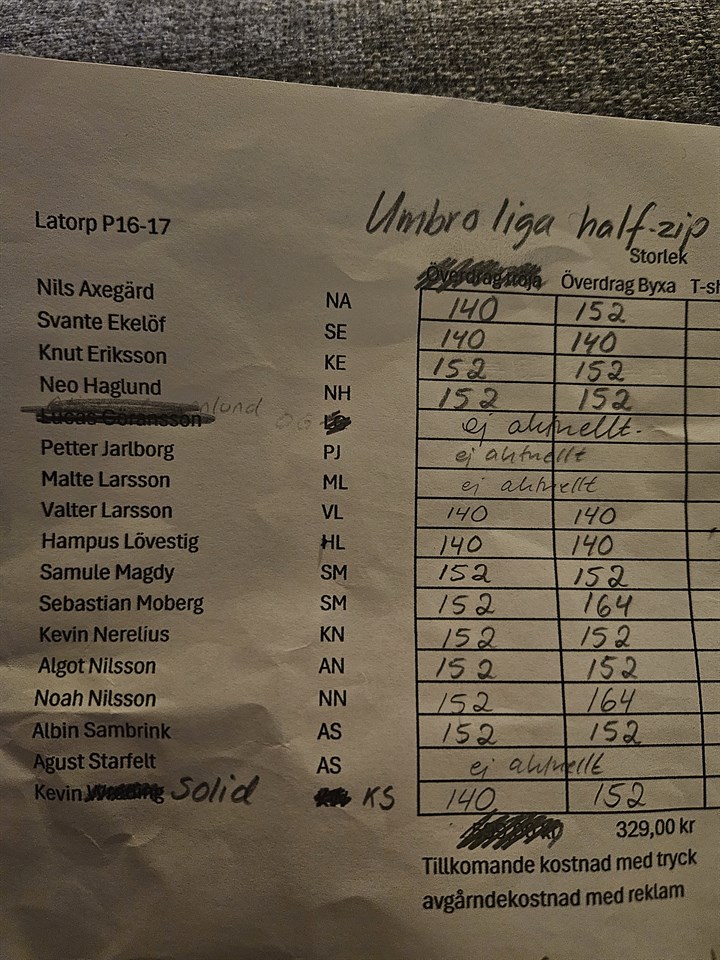 Latorp P16-17 Umbro liga half-zip
Storlek
Överdrag tröja Överdrag Byxa T-sh
Nils Axegärd NA 140 152
Svante Ekelöf SE 140 140
Knut Eriksson KE 152 152
Neo Haglund NH 152 152
Lucas Göransson OG ej aktuellt.
Petter Jarlborg PJ ej aktuellt
Malte Larsson ML ej aktuellt
Valter Larsson VL 140 140
Hampus Lövestig HL 140 140
Samule Magdy SM 152 152
Sebastian Moberg SM 152 164
Kevin Nerelius KN 152 152
Algot Nilsson AN 152 152
Noah Nilsson NN 152 164
Albin Sambrink AS 152 152
Agust Starfelt AS ej aktuellt
Kevin Solid KS 140 152
329,00 kr
Tillkomande kostnad med tryck
avgårndekostnad med reklam